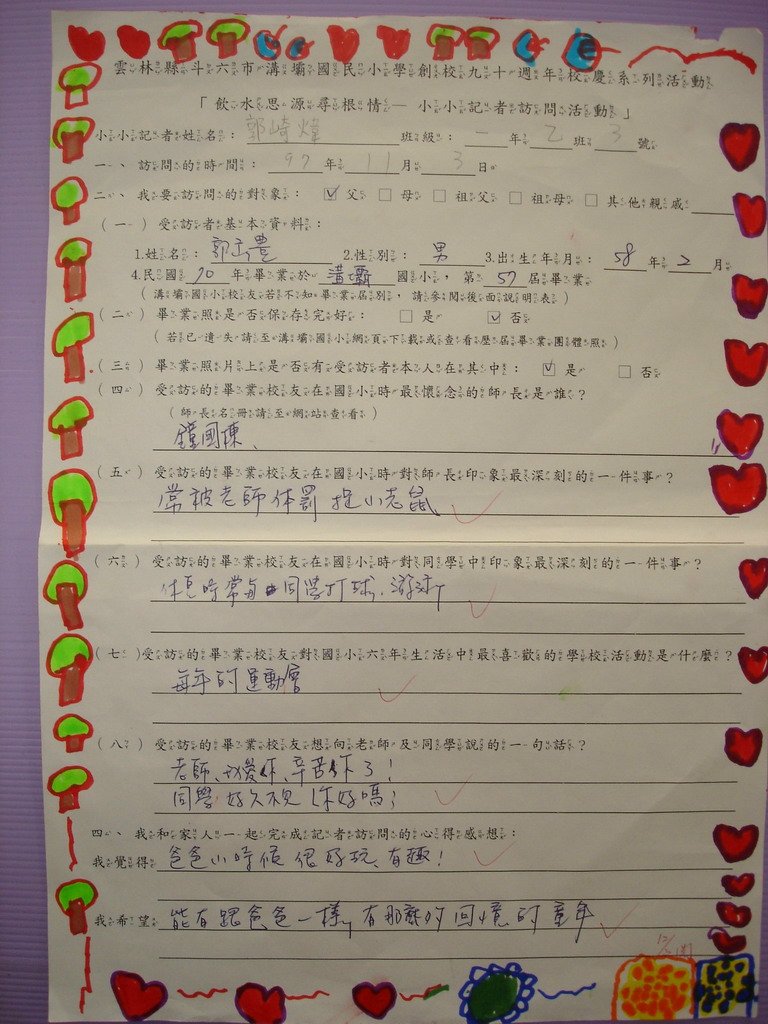 雲林縣斗六市溝壩國民小學創校九十週年校慶系列活動
「飲水思源尋根情— 小小記者訪問活動」
小小記者姓名：郭崎煒 班級：一年乙班3號
一、訪問的時間：97年11月3日
二、我要訪問的對象：☑父 □母 □祖父 □祖母 □其他親戚
(一) 受訪者基本資料：
1.姓名：郭 豊 2.性別：男 3.出生年月：58年2月
4.民國70年畢業於溝壩國小，第57屆畢業
(溝壩國小校友若不知畢業屆別，請參閱後面說明表)
(二) 畢業照是否保存完好：□是 ☑否
(若已遺失請至溝壩國小網頁下載或查看歷屆畢業團體照)
(三) 畢業照片上是否有受訪者本人在其中：☑是 □否
(四) 受訪的畢業校友在國小時最懷念的師長是誰？
(師長名冊請至網站查看)
鐘國棟、
(五) 受訪的畢業校友在國小時對師長印象最深刻的一件事？
常被老師体罰 捉小老鼠
(六) 受訪的畢業校友在國小時對同學中印象最深刻的一件事？
休息時常與同學打球、游泳
(七) 受訪的畢業校友對國小六年生活中最喜歡的學校活動是什麼？
每年的運動會
(八) 受訪的畢業校友想向老師及同學說的一句話？
老師、我愛你、辛苦你了！
同學 好久不見 你好嗎？
四、我和家人一起完成記者訪問的心得感想：
我覺得 爸爸小時候 很好玩、有趣！
我希望 能有跟爸爸一樣，有那麼的回憶的童年